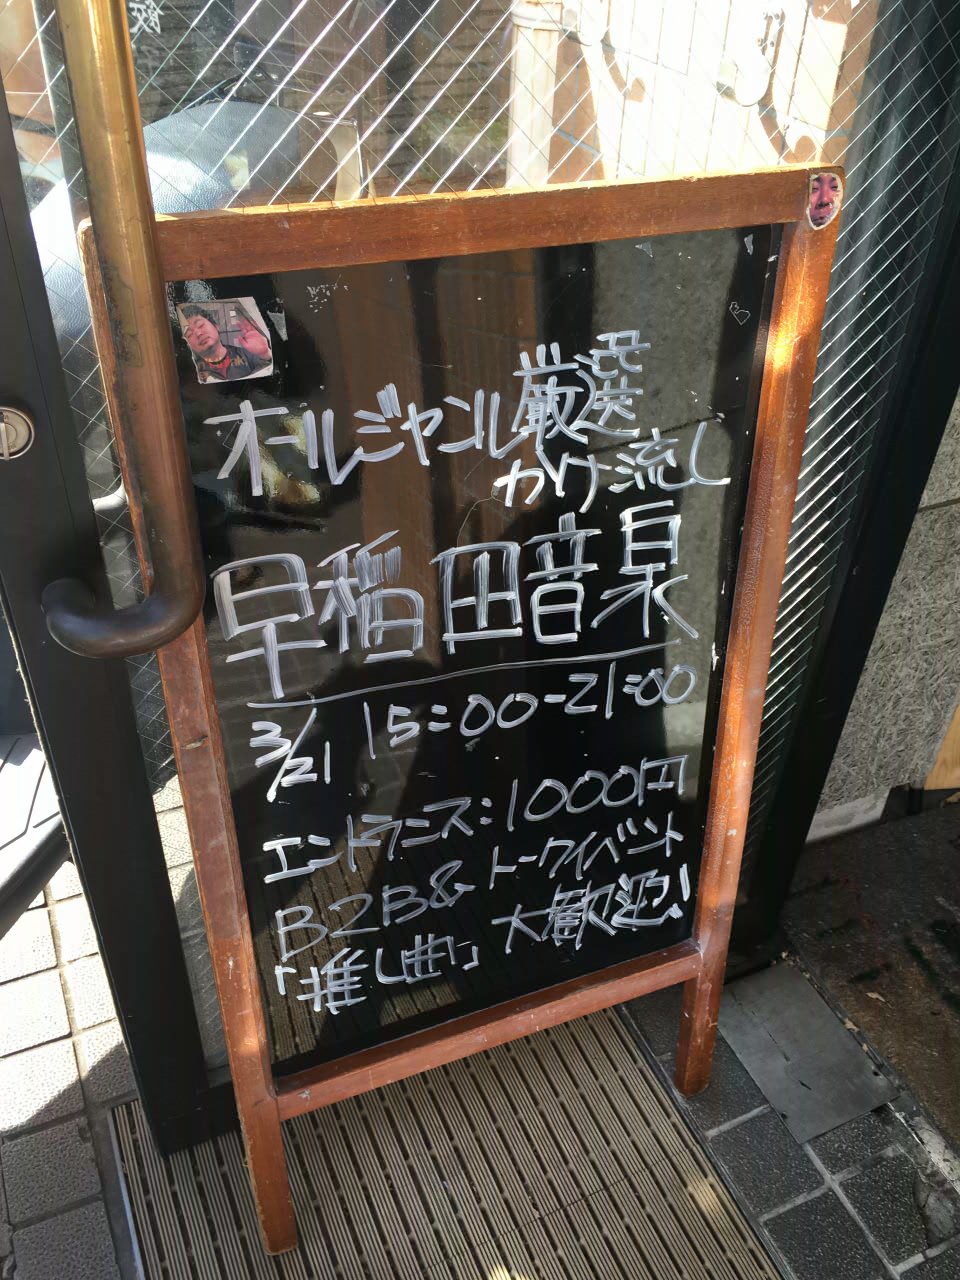 オールジャンル厳選
かけ流し
早稲田音泉
3/21 15:00-21:00
エントランス:1000円
B2B&トークイベント
「推し曲」大歓迎!